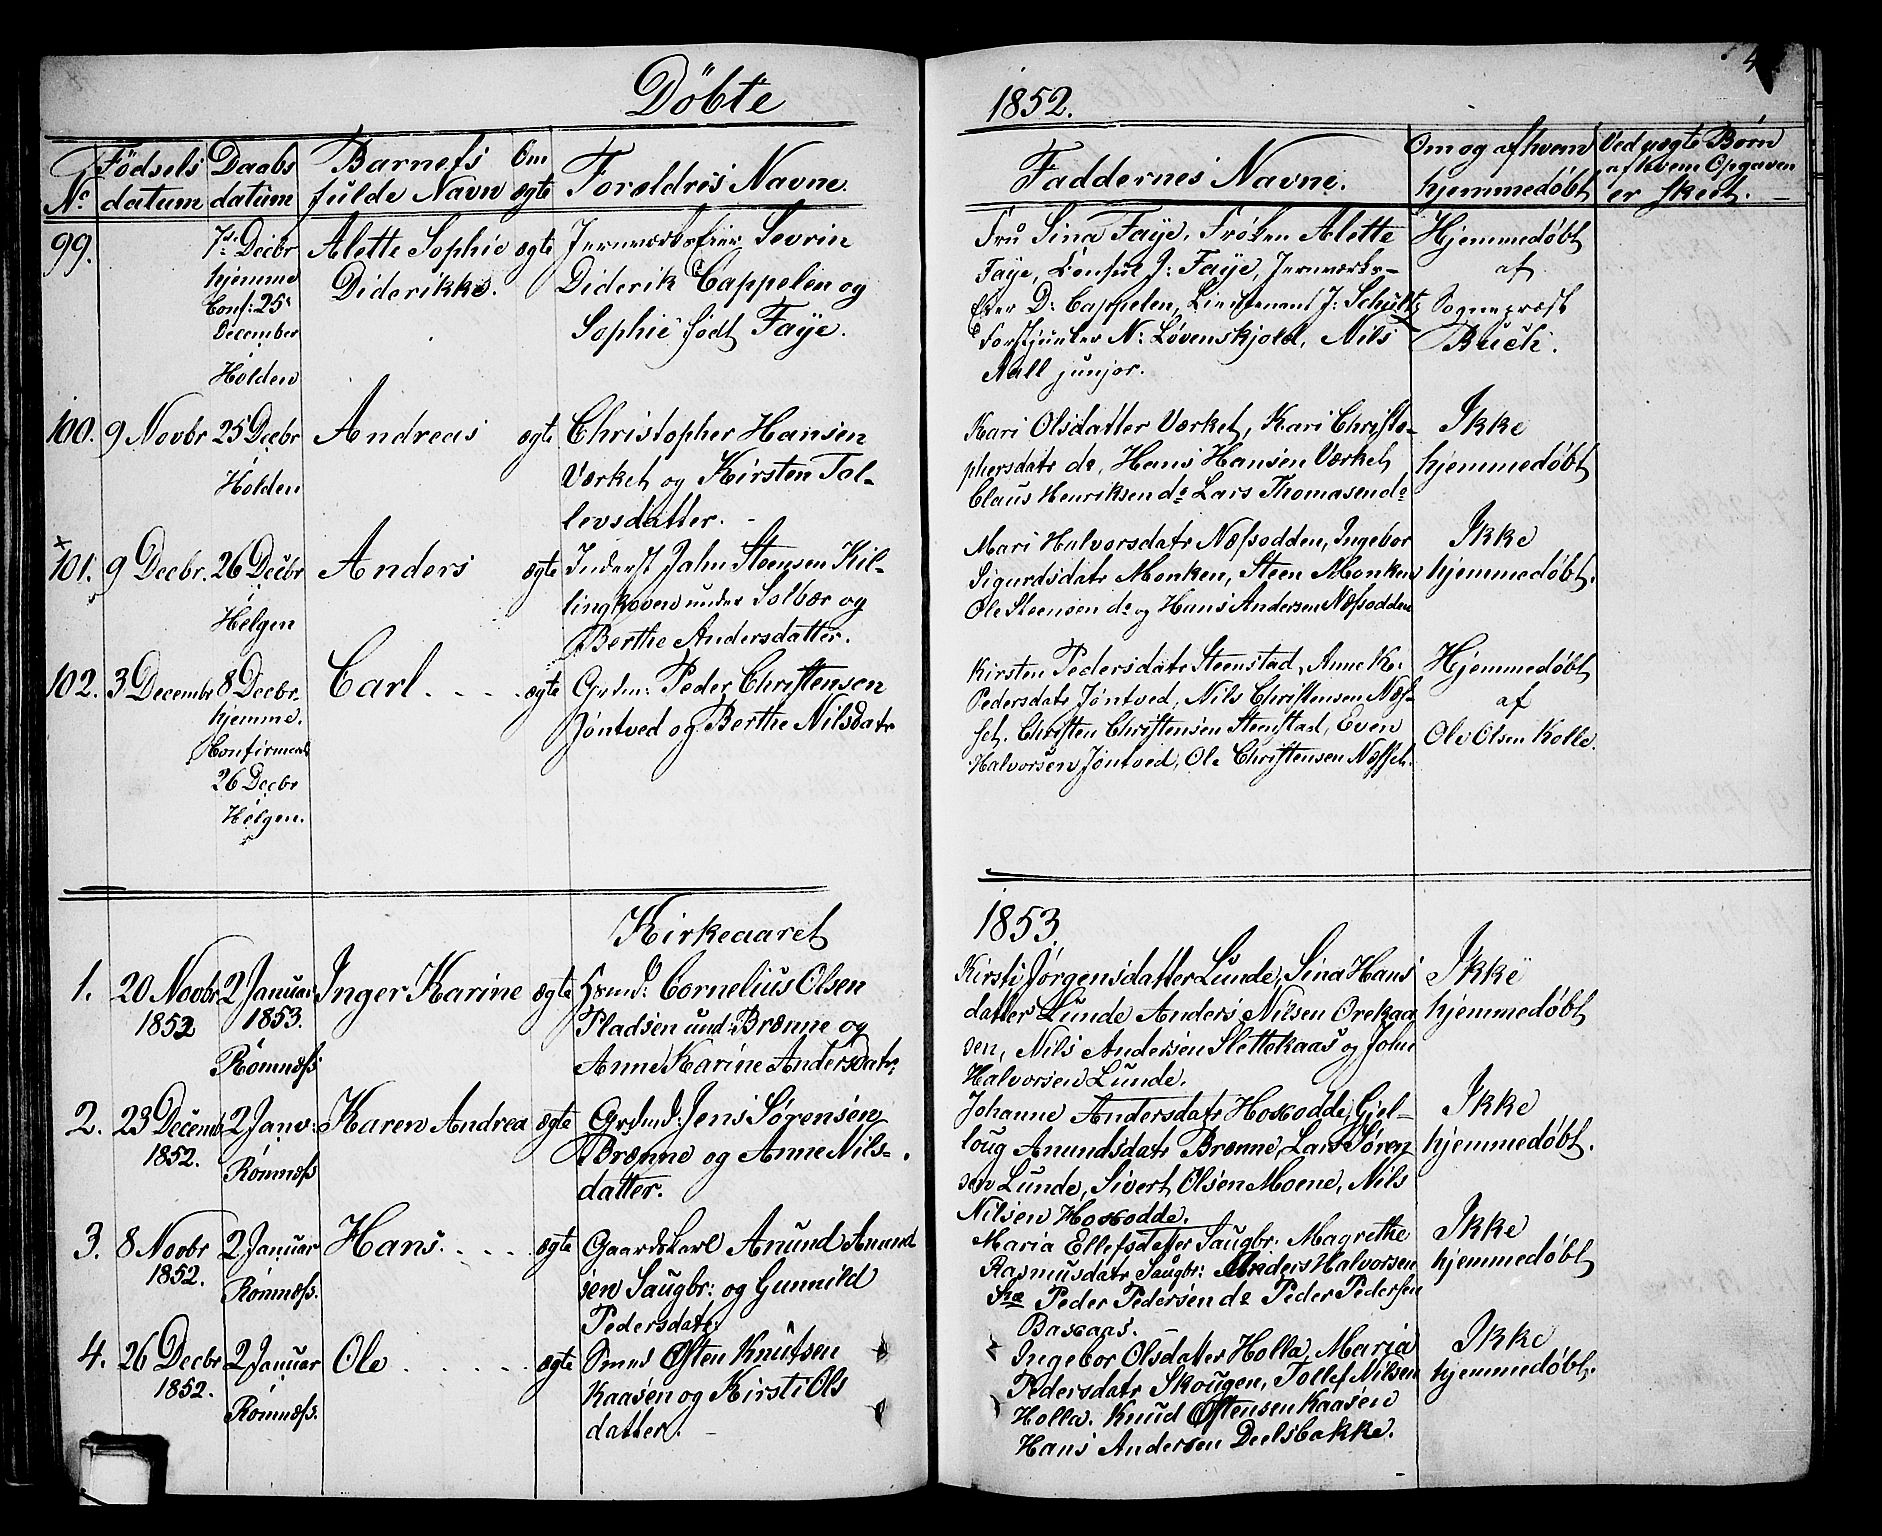 Döbte
1852.
No.
Födsels
datum
Daabs
datum
Barnets
fulde Navn
Om
ægte
Forældres Navne.
Faddernes Navne.
Om og af hvem
hjemmedøbt
Ved uægte Børn
af hvem Opgaven
er skeet.
99.
7de Decbr
hjemme
Conf: 25
December
Holden
Alette Sophie
Diderikke.
ægte
Jernværkseier Sevrin
Diderik Cappelen og
Sophie født Faÿe.
Fru Sina Faÿe, Frøken Alette
Faÿe, J: Faÿe, Jernværks-
Eier D: Cappelen, Lieutenant J: Schultz
Forstjunker N: Løvenskjold, Nils
Aall junjor.
Hjemmedøbt
af
Sognepræst
Buch.
100.
9 Novbr
25 Decbr
Holden
Andreas
ægte
Christopher Hansen
Værket og Kirsten Tol-
levsdatter.
Kari Olsdatter Værket, Kari Christo-
phersdatr do, Hans Hansen Værket
Claus Henriksen do Lars Thomasen do
Ikke
hjemmedøbt
101.
9 Decbr.
26 Decbr
Helgen
Anders
ægte
Inderst John Steensen Kil-
lingkoven under Solbær og
Berthe Andersdatter.
Mari Halvorsdatr Næfsodden, Ingebor
Sigurdsdatr Monken, Steen Monken
Ole Steensen do og Hans Andersen Næfsodden
Ikke
hjemmedøbt.
102.
3 Decembr
8 Decbr.
hjemme.
Confirmeret
26 Decbr
Helgen.
Carl
ægte
Grdm: Peder Christensen
Jøntved og Berthe Nilsdatr
Kirsten Pedersdatr Steenstad, Anne K:
Pedersdatr Jøntved, Nils Christensen Næf-
set. Christen Christensen Stenstad, Even
Halvorsen Jøntved, Ole Christensen Næfset.
Hjemmedøbt
af
Ole Olsen Kolle.
Kirkeaaret
1853.
1.
20 Novbr
1852
2 Januar
1853.
Romnæfs
Inger Karine
ægte
Hsmd: Cornelius Olsen
Pladsen und: Brænne og
Anne Karine Andersdatr:
Kirsti Jørgensdatter Lunde, Sina Hans
datter Lunde Anders Nilsen Orekaa
sen, Nils Andersen Slettekaas og John
Halvorsen Lunde.
Ikke
hjemmedøbt
2.
23 Decemb
1852.
2 Janv:
Romnæfs
Karen Andrea
ægte
Grdmd: Jens Sørensen
Brænne og Anne Nils-
datter.
Johanne Andersdatr Hoxodde, Gjel-
loug Anundsdatr Brænne, Lars Søren
sen Lunde, Sivert Olsen Moene, Nils
Nilsen Hoxodde.
Ikke
hjemmedøbt.
3.
8 Novbr
1852.
2 Januar
Romnæfs.
Hans
ægte
Gaardskarl Anund Anund
sen Saugbr: og Gunnild
Pedersdatr
Maria Ellefsdatter Saugbr: Magrethe
Rasmusdatr Saugbr: Anders Halvorsen
Peder Pedersen do Peder Pedersen
Baxaas.
Ikke
hjemmedøbt
4.
26 Decbr
1852.
2 Januar
Romnæfs.
Ole
ægte
Smed Østen Knutsen
Kaasen og Kirsti Ols
datter.
Ingebor Olsdatter Holla, Maria
Pedersdatr Skougen, Tollef Nilsen
Holla. Knud Østensen Kaasen
Hans Andersen Deelsbakke.
Ikke
hjemmedøbt.